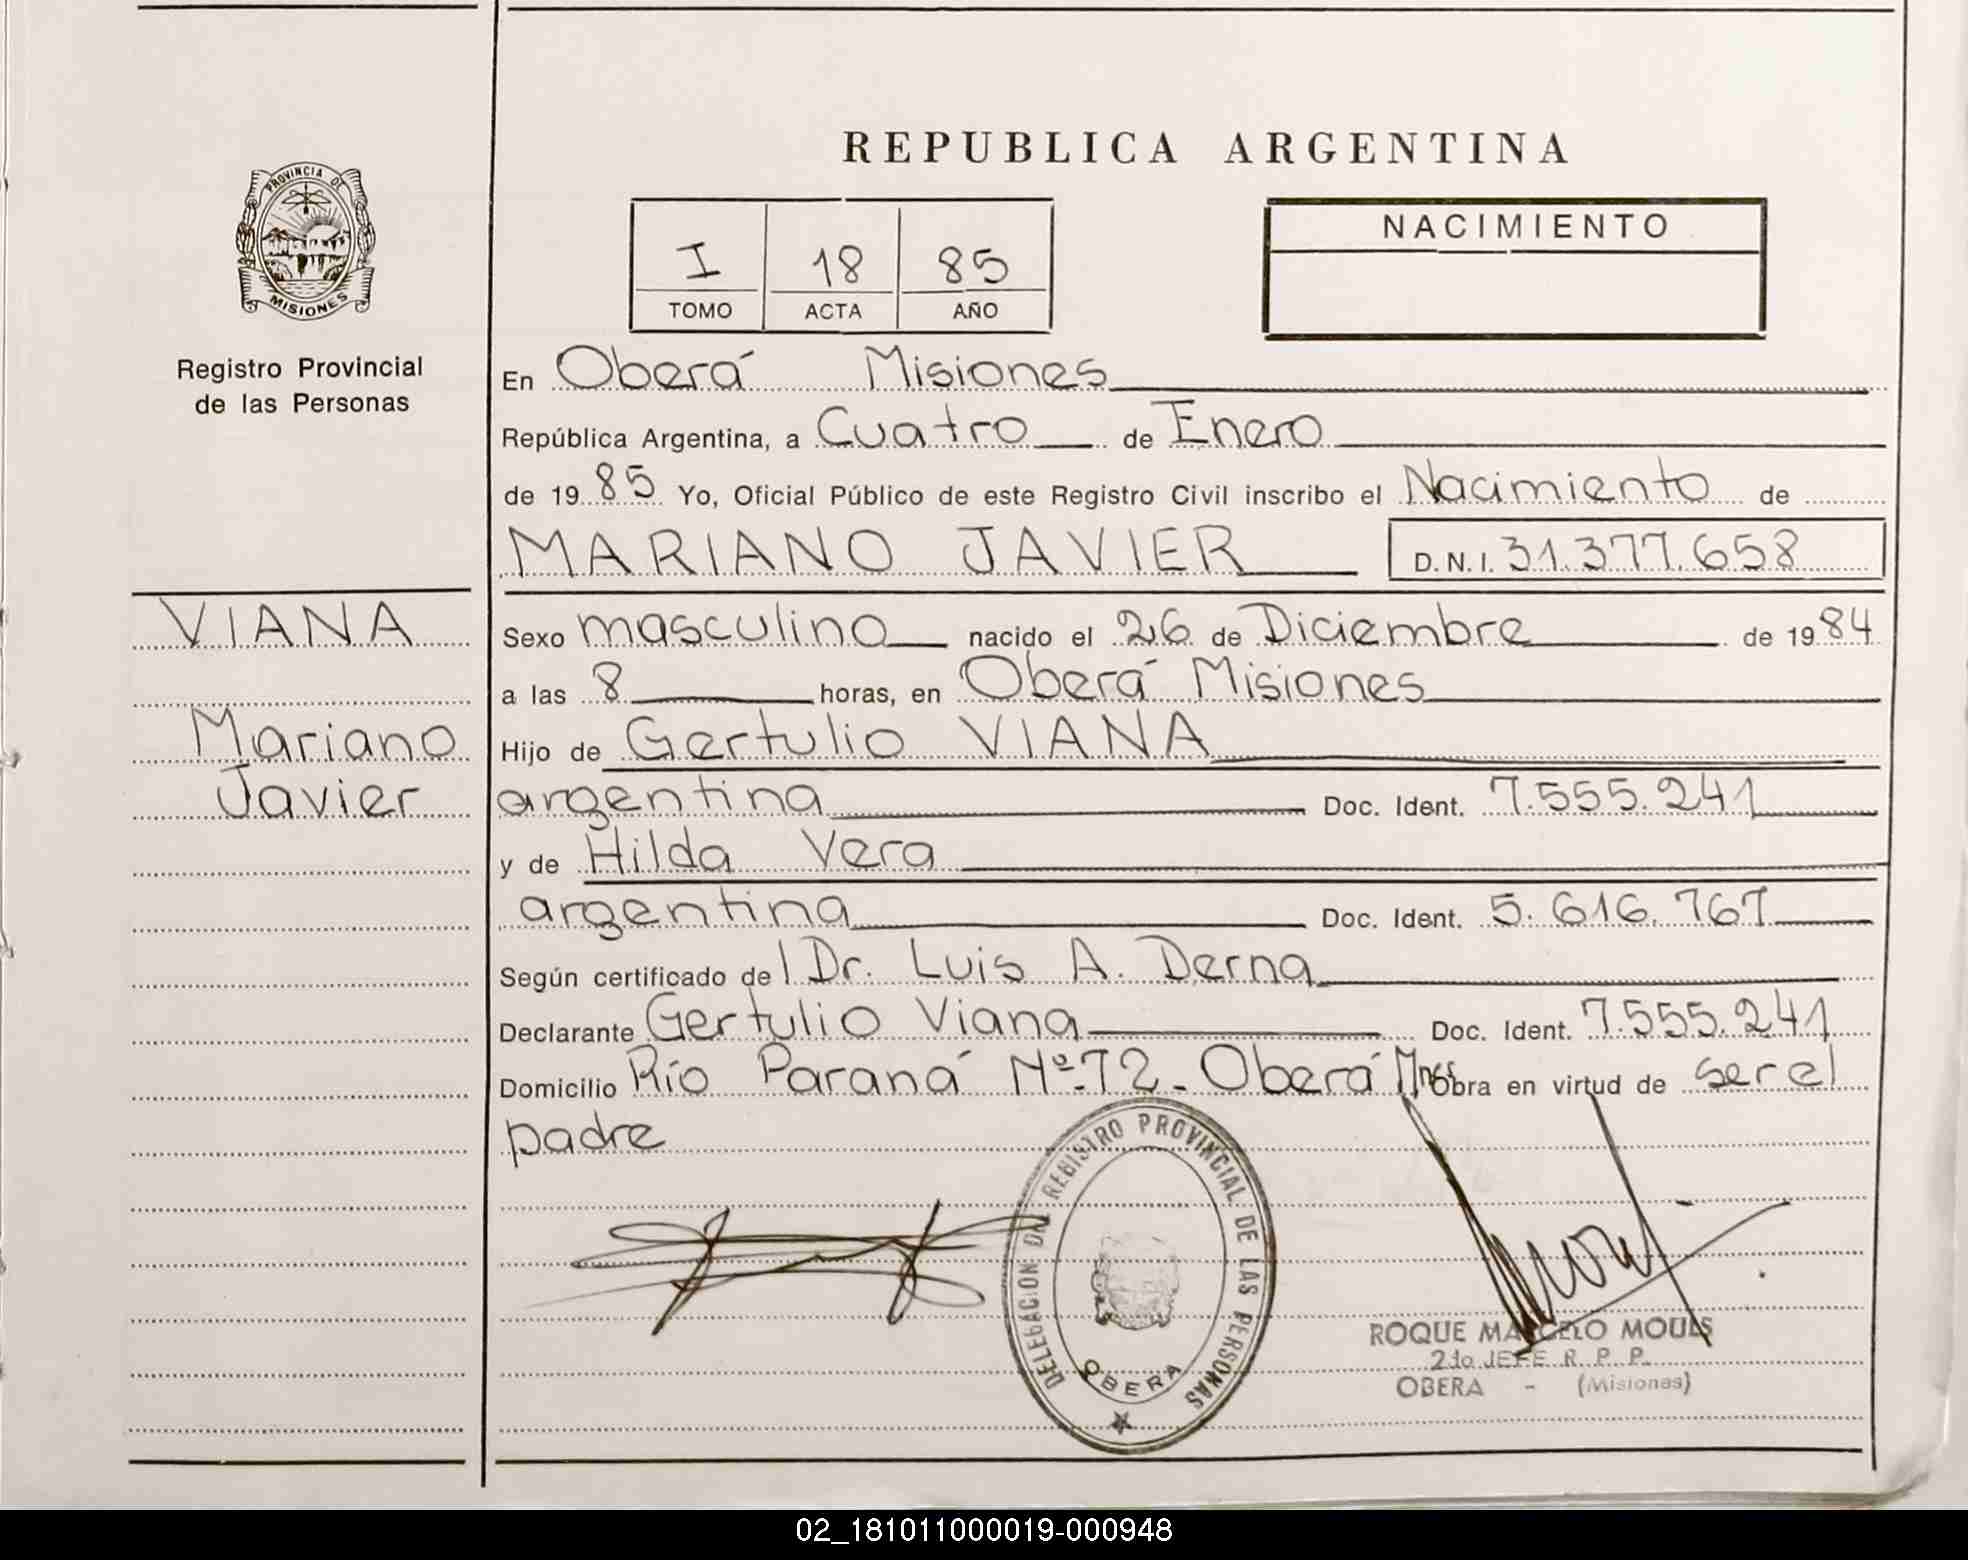 REPUBLICA ARGENTINA
PROVINCIA DE
MISIONES
Registro Provincial
de las Personas
I 18 85
TOMO ACTA AÑO
NACIMIENTO
En Oberá Misiones
República Argentina, a Cuatro de Enero
de 1985 Yo, Oficial Público de este Registro Civil inscribo el Nacimiento de
MARIANO JAVIER D.N.I. 31.377.658
VIANA
Mariano
Javier
Sexo masculino nacido el 26 de Diciembre de 1984
a las 8 horas, en Oberá Misiones
Hijo de Gertulio VIANA
argentina Doc. Ident. 7.555.241
y de Hilda Vera
argentina Doc. Ident. 5.616.767
Según certificado de l Dr. Luis A. Derna
Declarante Gertulio Viana Doc. Ident. 7.555.241
Domicilio Río Paraná Nº 72 - Oberá Mnes Obra en virtud de ser el
padre
DELEGACION DEL REGISTRO PROVINCIAL DE LAS PERSONAS
OBERA
ROQUE MARCELO MOULS
2do JEFE R. P. P.
OBERA - (Misiones)
02_181011000019-000948